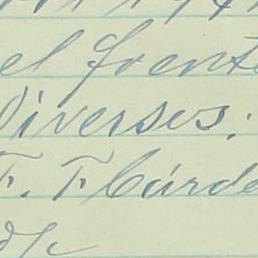 el frente
Diversos.
F. F. Cárde
d/c